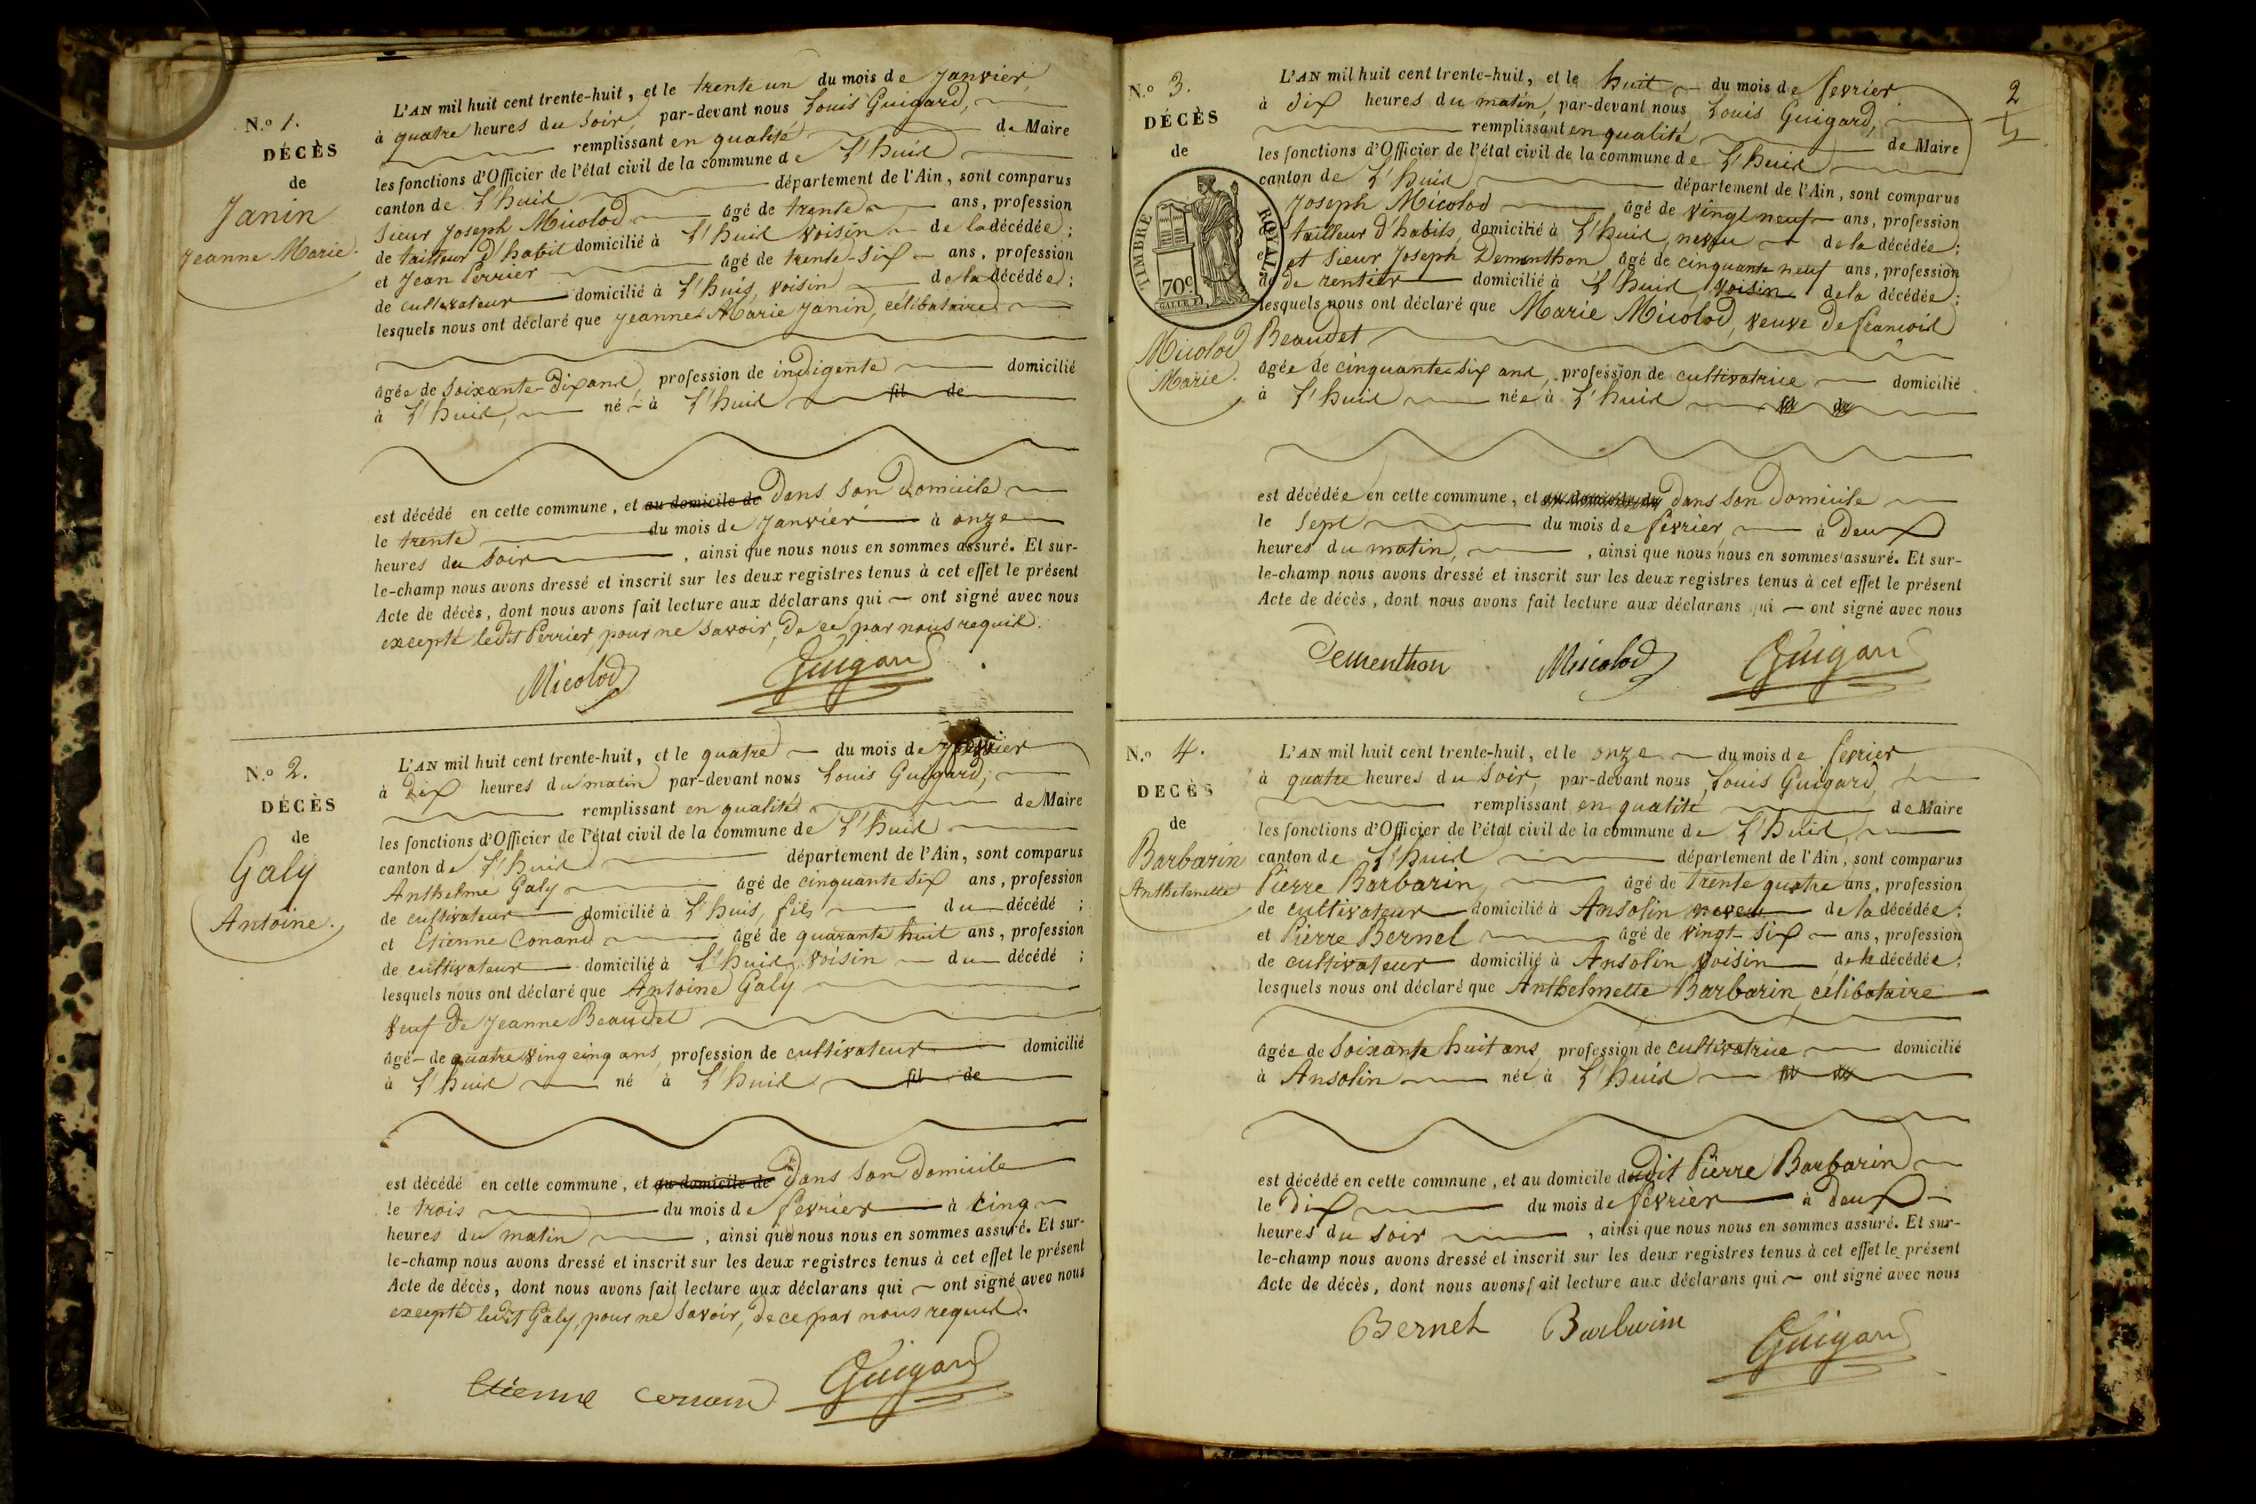 N.º 1.
DÉCÈS
de
Janin
Jeanne Marie.
L'AN mil huit cent trente-huit, et le trente un du mois de Janvier,
à quatre heures du soir, par-devant nous Louis Guigard,
remplissant en qualité de Maire
les fonctions d'Officier de l'état civil de la commune de L'huis
canton de L'huis département de l'Ain, sont comparus
Sieur Joseph Micolod âgé de trente ans, profession
de tailleur d'habit domicilié à L'huis voisin de la décédée;
et Jean Perrier âgé de trente-six ans, profession
de cultivateur domicilié à L'huis, voisin de la décédée;
lesquels nous ont déclaré que Jeanne Marie Janin, célibataire
âgée de soixante-dix ans, profession de indigente domicilié
à L'huis, né à L'huis fil de
est décédé en cette commune, et au domicile de Dans son Domicile
le trente du mois de Janvier à onze
heures du soir, ainsi que nous nous en sommes assuré. Et sur-
le-champ nous avons dressé et inscrit sur les deux registres tenus à cet effet le présent
Acte de décès, dont nous avons fait lecture aux déclarans qui ont signé avec nous
excepté ledit Perrier, pour ne savoir, de ce par nous requis.
Micolod Guigard
N.º 2.
DÉCÈS
de
Galy
Antoine.
L'AN mil huit cent trente-huit, et le quatre du mois de fevrier
à Dix heures du matin par-devant nous Louis Guigard,
remplissant en qualité de Maire
les fonctions d'Officier de l'état civil de la commune de L'huis
canton de L'huis département de l'Ain, sont comparus
Anthelme Galy âgé de cinquante six ans, profession
de cultivateur domicilié à L'huis, fils du décédé;
et Etienne Conand âgé de quarante huit ans, profession
de cultivateur domicilié à L'huis voisin du décédé;
lesquels nous ont déclaré que Antoine Galy
veuf de Jeanne Beaudet
âgé de quatre ving cinq ans, profession de cultivateur domicilié
à L'huis né à L'huis fil de
est décédé en cette commune, et au domicile de Dans son Domicile
le trois du mois de fevrier à cinq
heures du matin, ainsi que nous nous en sommes assuré. Et sur-
le-champ nous avons dressé et inscrit sur les deux registres tenus à cet effet le présent
Acte de décès, dont nous avons fait lecture aux déclarans qui ont signé avec nous
excepté ledit Galy, pour ne savoir, de ce par nous requis.
Etienne Conand Guigard
2
N.º 3.
DÉCÈS
de
TIMBRE ROYAL
70c
Micolod
Marie.
L'AN mil huit cent trente-huit, et le huit du mois de fevrier
à Dix heures du matin, par-devant nous Louis Guigard,
remplissant en qualité de Maire
les fonctions d'Officier de l'état civil de la commune de L'huis
canton de L'huis département de l'Ain, sont comparus
Joseph Micolod âgé de vingt neuf ans, profession
tailleur d'habits, domicilié à L'huis, neveu de la décédée;
et Sieur Joseph Dementhon âgé de cinquante neuf ans, profession
de de rentier domicilié à L'huis voisin de la décédée;
lesquels nous ont déclaré que Marie Micolod, veuve de francois
Beaudet
âgée de cinquante-six ans, profession de cultivatrice domicilié
à L'huis née à L'huis
est décédée en cette commune, et au domicile de dans son Domicile
le sept du mois de fevrier, à Deux
heures du matin, ainsi que nous nous en sommes assuré. Et sur-
le-champ nous avons dressé et inscrit sur les deux registres tenus à cet effet le présent
Acte de décès, dont nous avons fait lecture aux déclarans qui ont signé avec nous
Dementhon Micolod Guigard
N.º 4.
DECÈS
de
Barbarin
Anthelmette
L'AN mil huit cent trente-huit, et le onze du mois de fevrier
à quatre heures du soir, par-devant nous Louis Guigard,
remplissant en qualité de Maire
les fonctions d'Officier de l'état civil de la commune de L'huis,
canton de L'huis département de l'Ain, sont comparus
Pierre Barbarin, âgé de trente quatre ans, profession
de cultivateur domicilié à Ansolin neveu de la décédée;
et Pierre Bernel âgé de vingt-six ans, profession
de cultivateur domicilié à Ansolin voisin de la décédée;
lesquels nous ont déclaré que Anthelmette Barbarin, célibataire
âgée de soixante huit ans profession de cultivatrice domicilié
à Ansolin née à L'huis
est décédé en cette commune, et au domicile dudit Pierre Barbarin
le Dix du mois de fevrier à deux
heures du soir, ainsi que nous nous en sommes assuré. Et sur-
le-champ nous avons dressé et inscrit sur les deux registres tenus à cet effet le présent
Acte de décès, dont nous avons fait lecture aux déclarans qui ont signé avec nous
Bernel Barbarin Guigard